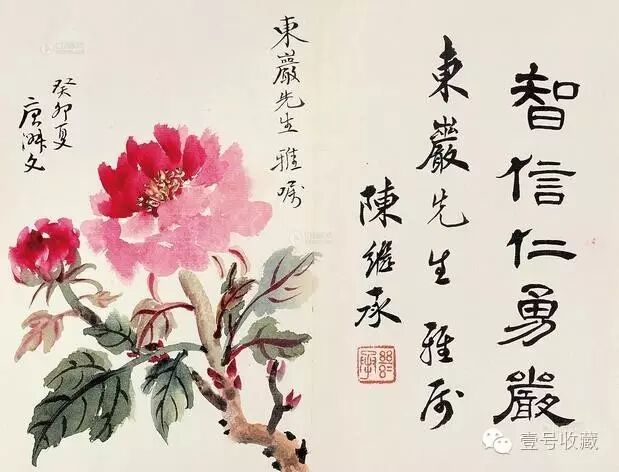 智信仁勇嚴
東巖先生雅属
陳继承
東巖先生雅嘱
癸卯夏
壹号收藏